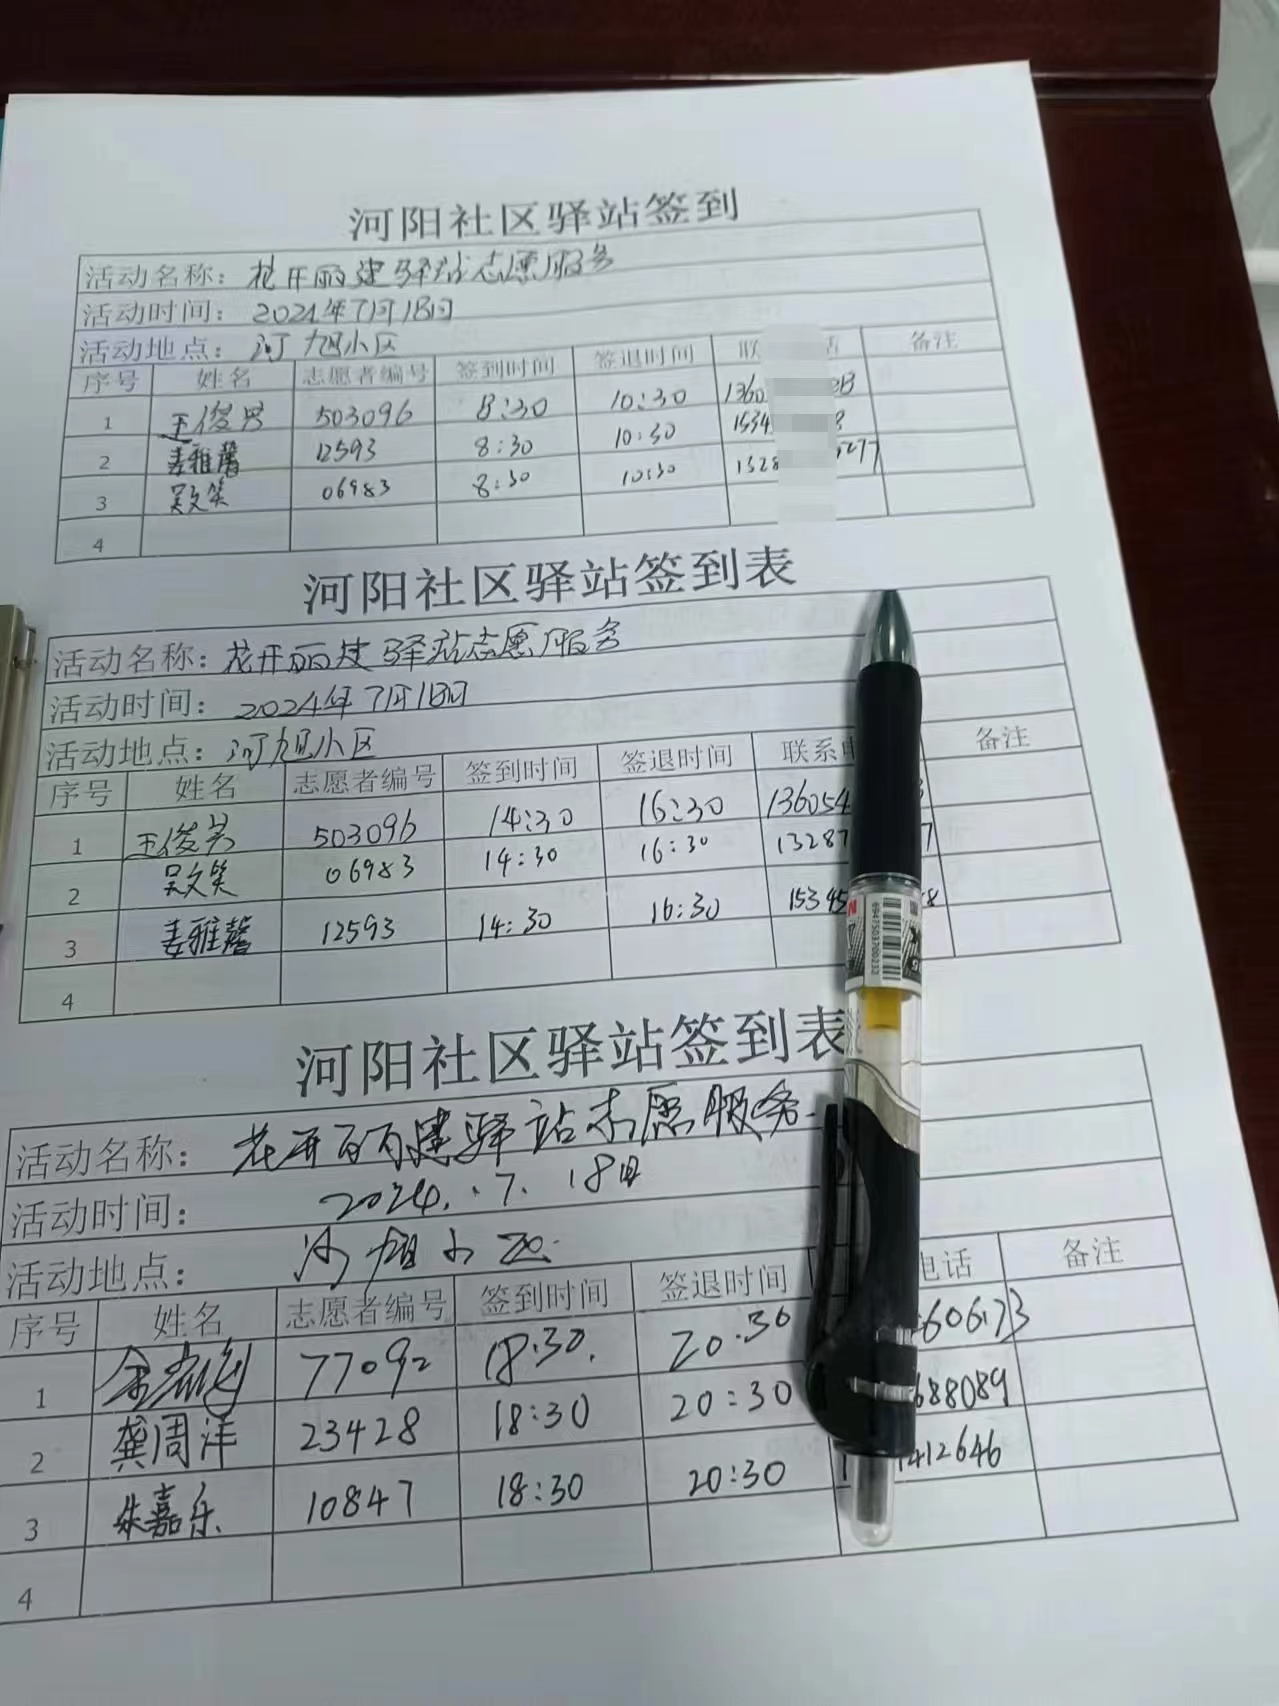 河阳社区驿站签到
活动名称：花开丽建驿站志愿服务
活动时间：2024年7月18日
活动地点：河旭小区
序号 姓名 志愿者编号 签到时间 签退时间 联 话 备注
1 王俊男 503096 8:30 10:30 1360
2 姜雅馨 12593 8:30 10:30 1534 8
3 吴文笑 06983 8:30 10:30 1328 5277
4
河阳社区驿站签到表
活动名称：花开丽建驿站志愿服务
活动时间：2024年7月18日
活动地点：河旭小区
序号 姓名 志愿者编号 签到时间 签退时间 联系电 备注
1 王俊男 503096 14:30 16:30 136054
2 吴文笑 06983 14:30 16:30 13287 7
3 姜雅馨 12593 14:30 16:30 15345 8
4
河阳社区驿站签到表
活动名称：花开丽建驿站志愿服务
活动时间：2024.7.18日
活动地点：河旭小区
序号 姓名 志愿者编号 签到时间 签退时间 电话 备注
1 77092 18:30 20:30 60673
2 龚周洋 23428 18:30 20:30 688089
3 朱嘉乐 10847 18:30 20:30 1412646
4
6947503700232